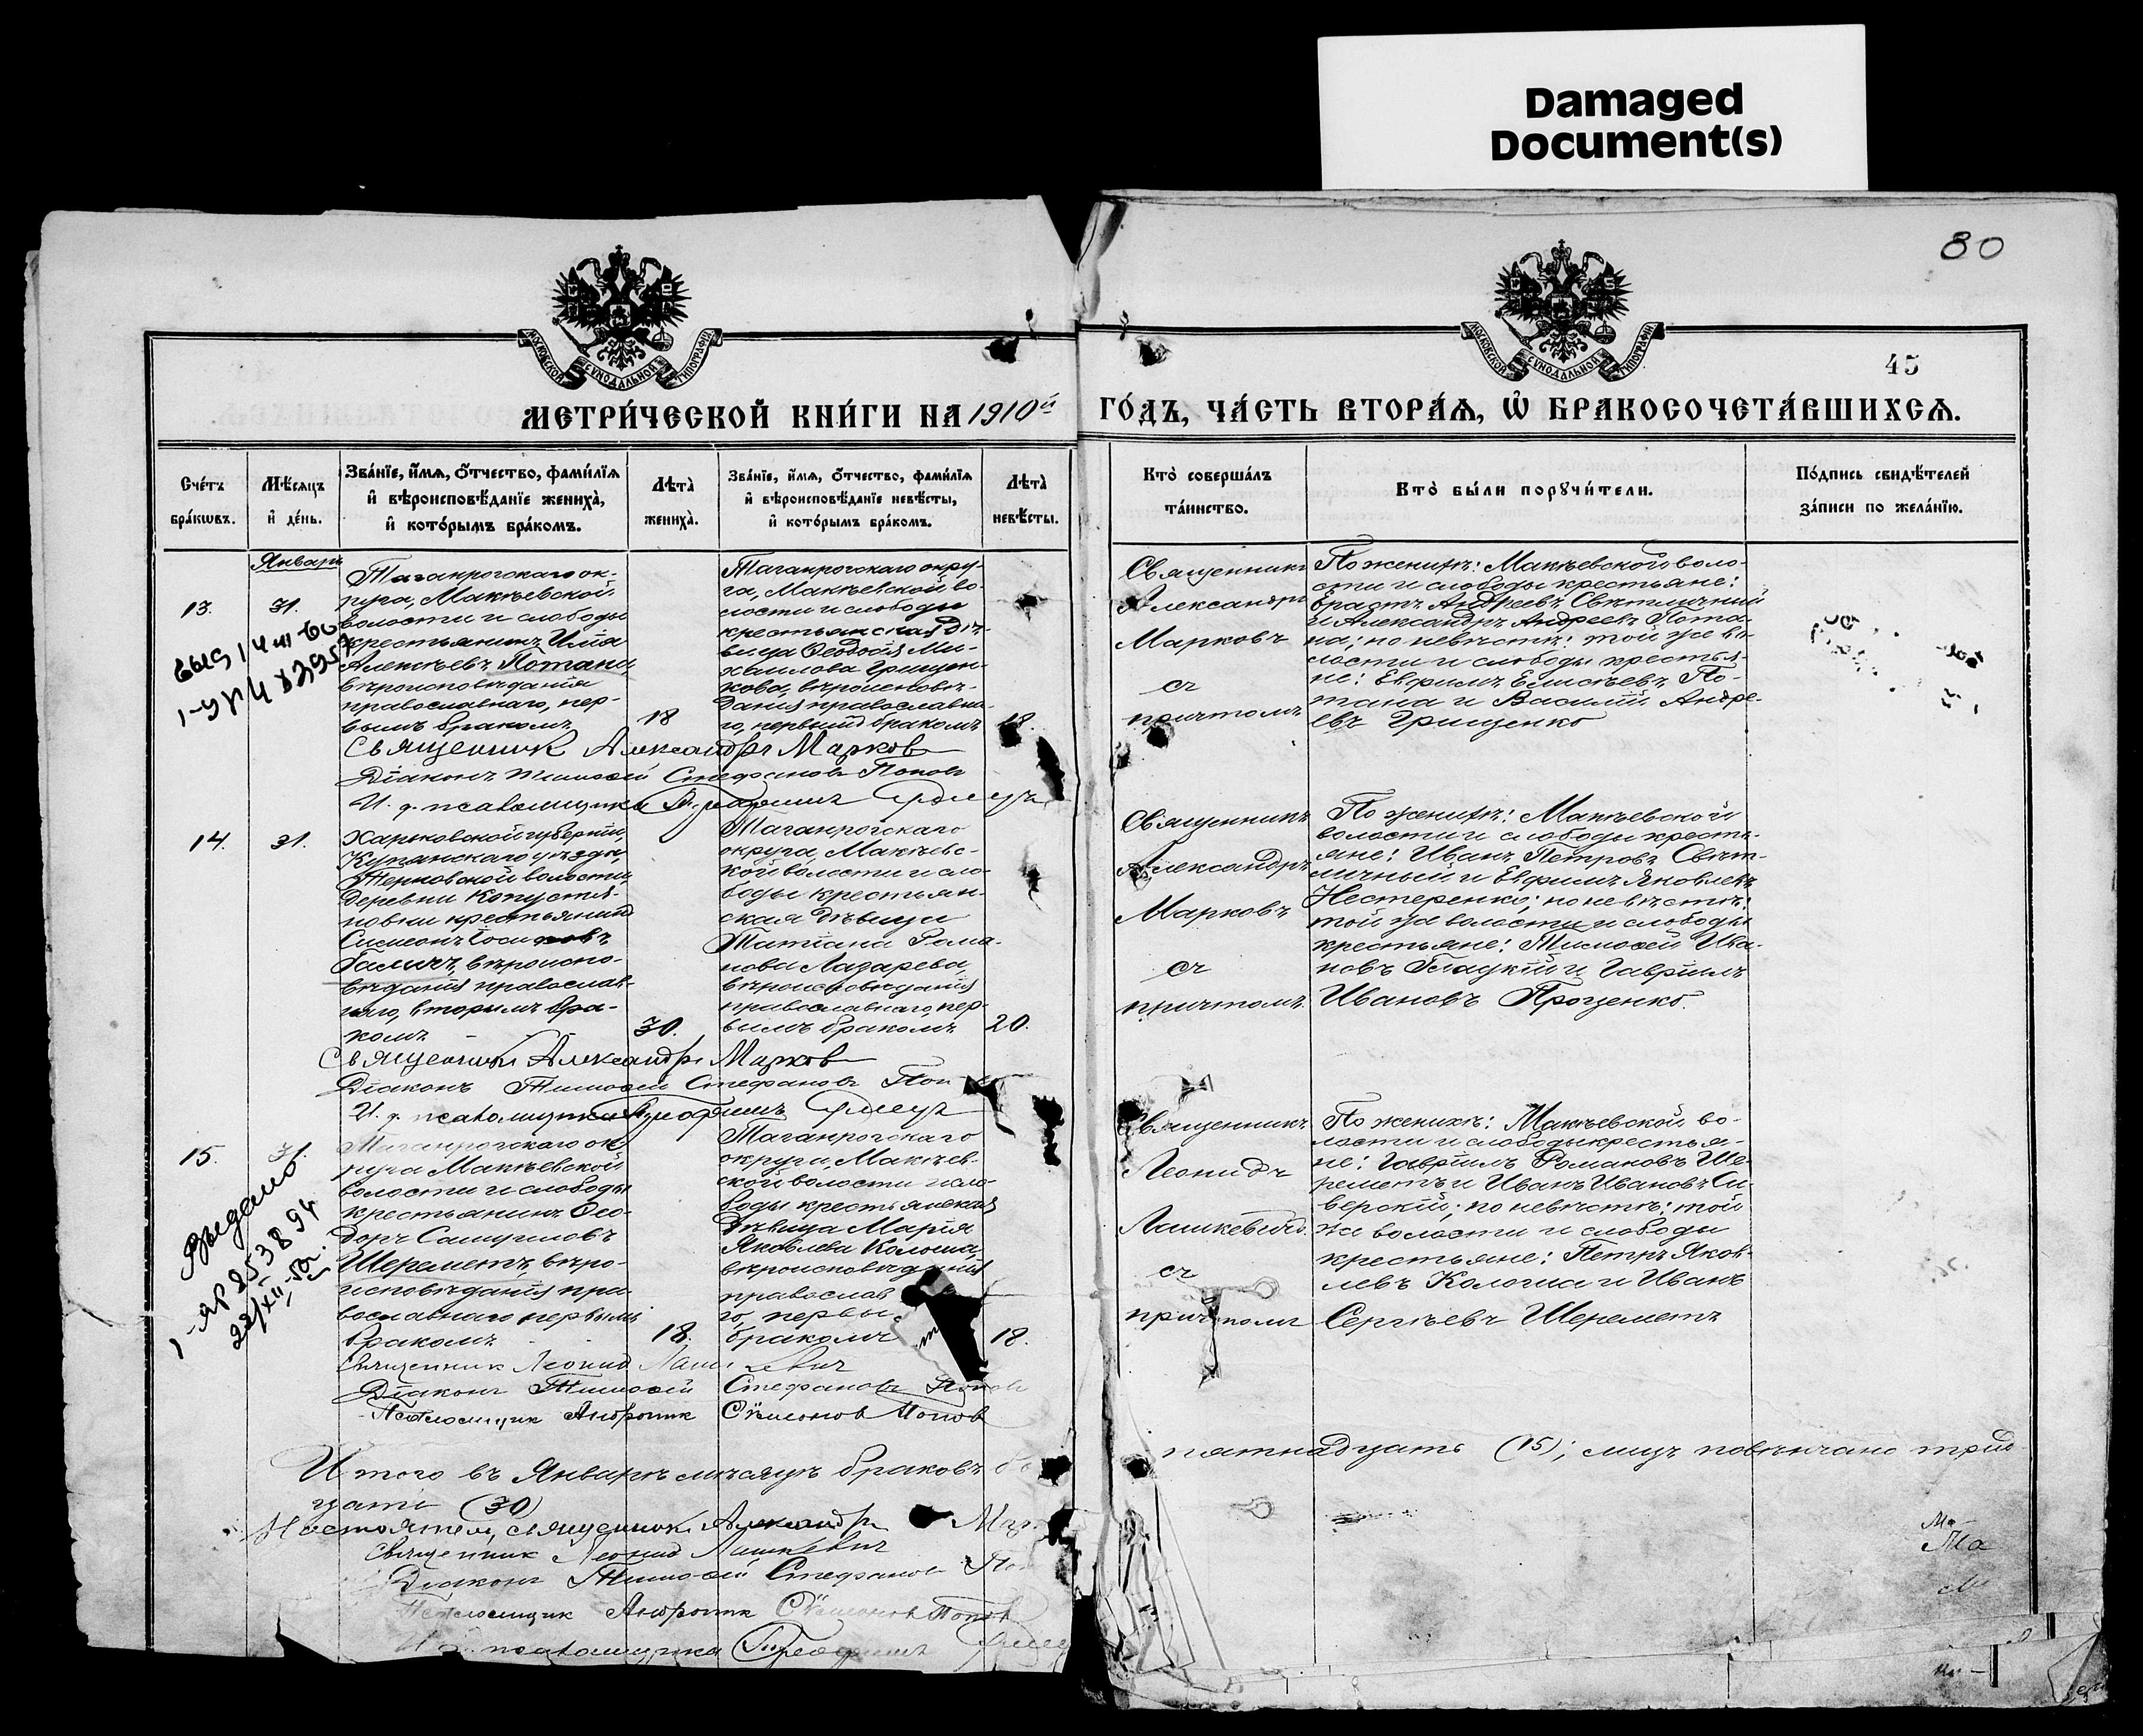 Damaged
Document(s)
80
45
МОСКОВСКОЙ СѴНОДАЛЬНОЙ ТИПОГРАФІИ
МОСКОВСКОЙ СѴНОДАЛЬНОЙ ТИПОГРАФІИ
МЕТРИ́ЧЕСКОЙ КНИ́ГИ НА 1910й ГО́ДЪ, ЧА́СТЬ ВТОРА́Я, Ѽ БРАКОСОЧЕТА́ВШИХСЯ.
Счетъ браковъ.
Мѣсяцъ и день.
Званіе, имя, отчество, фамилія
и вѣроисповѣданіе жениха,
и которымъ бракомъ.
Лѣта жениха.
Званіе, имя, отчество, фамилія
и вѣроисповѣданіе невѣсты,
и которымъ бракомъ.
Лѣта невѣсты.
Кто совершалъ
таинство.
Кто были поручители.
Подпись свидѣтелей
записи по желанію.
Январь
13.
31.
Таганрогскаго ок-
руга, Макѣевской
волости и слободы
крестьянинъ Илія
Алексѣевъ Потана,
вѣроисповѣданія
православнаго, пер-
вымъ бракомъ
18
Таганрогскаго окру-
га, Макѣевской во-
лости и слободы
крестьянская дѣ-
вица Ѳеодосія Ми-
хаилова Грищен-
кова, вѣроисповѣ-
данія православна-
го, первымъ бракомъ
18.
Священникъ
Александръ
Марковъ
съ
причтомъ
По женихѣ: Макѣевской воло-
сти и слободы крестьяне:
Ерастъ Андреевъ Свѣтличный
и Александръ Андреевъ Пота-
на; по невѣстѣ: той же во-
лости и слободы крестья-
не: Евфимъ Елисѣевъ По-
тана и Василій Андре-
евъ Грищенко
Священник Александръ Марков
Діаконъ Тимоѳей Стефановъ Поповъ
И. д. псаломщика
14.
31.
Харьковской губерніи
Купянскаго уѣзда,
Терновской волости,
деревни Копустя-
новки крестьянинъ
Симеонъ Іосифовъ
Галичъ, вѣроиспо-
вѣданія православ-
наго, вторымъ бра-
комъ
30.
Таганрогскаго
округа, Макѣевс-
кой волости и сло-
боды крестьян-
ская дѣвица
Татіана Рома-
нова Лазарева,
вѣроисповѣданія
православнаго, пер-
вымъ бракомъ
20.
Священникъ
Александръ
Марковъ
съ
причтомъ.
По женихѣ: Макѣевской
волости и слободы кресть-
яне: Иванъ Петровъ Свѣт-
личный и Евфимъ Яковлевъ
Нестеренко; по невѣстѣ:
той же волости и слободы
крестьяне: Тимоѳей Ива-
новъ Гладкій и Гавріилъ
Ивановъ Проценко.
Священник Александръ Марков
Діаконъ Тимоѳей Стефановъ Поп
И. д. псаломщика
15.
31.
Выдано
22/XII-50г.
Таганрогскаго ок-
руга Макѣевской
волости и слободы
крестьянинъ Ѳео-
доръ Самуиловъ
Шереметъ, вѣро-
исповѣданія пра-
вославнаго первымъ
бракомъ
18.
Таганрогскаго
округа, Макѣев-
ской волости и сло-
боды крестьянская
дѣвица Марія
Яковлева Колоша,
вѣроисповѣданія
православ
го, первы
бракомъ
18.
Священникъ
Леонидъ
Лашкевичъ
съ
причтомъ
По женихѣ: Макѣевской во-
лости и слободы крестья-
не: Гавріилъ Романовъ Ше-
реметъ и Иванъ Ивановъ Си-
верскій; по невѣстѣ: той
же волости и слободы
крестьяне: Петръ Яков-
левъ Колоша и Иванъ
Сергѣевъ Шереметъ
Священник Леонид Лашкевич
Діаконъ Тимоѳей Стефановъ Попов
Псаломщик Андроник Сѵмеонов Попов
Итого въ Январѣ мѣсяцѣ браковъ пятнадцать (15); лицъ повѣнчано трид-
цать (30)
Настоятель, священник Александръ Мар
Священник Леонид Лашкевич
Діаконъ Тимоѳей Стефанов По
Псаломщик Андроник Сѵмеонов Попов
И. д. псаломщика